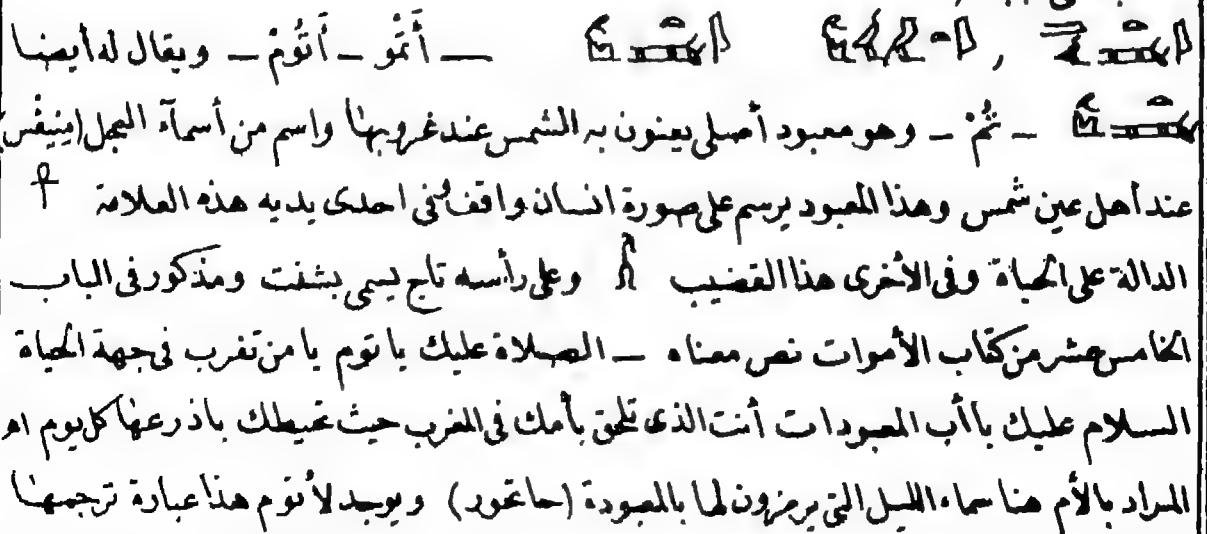 — أَتْمُو — أَتُومْ — ويقال له أيضا
— تُمْ — وهو معبود أصلى يعنون به الشمس عند غروبها واسم من أسمآء العجل (مِنِيفْس)
عند أهل عين شمس وهذا المعبود يرسم على صورة انسان واقف فى احدى يديه هذه العلامة
الدالة على الحياة وفى الأخرى هذا القضيب وعلى رأسه تاج يسمى بشنت ومذكور فى الباب
الخامس عشر من كتاب الأموات نص معناه — الصلاة عليك يا توم يا من تغرب فى جهة الحياة
السلام عليك يا أب المعبودات أنت الذى تلحق بأمك فى المغرب حيث تحيطك باذرعها كل يوم اه
المراد بالأم هنا سماء الليل التى يرمزون لها بالمعبودة (حاتحور) ويوجد لأتوم هذا عبارة ترجمتها